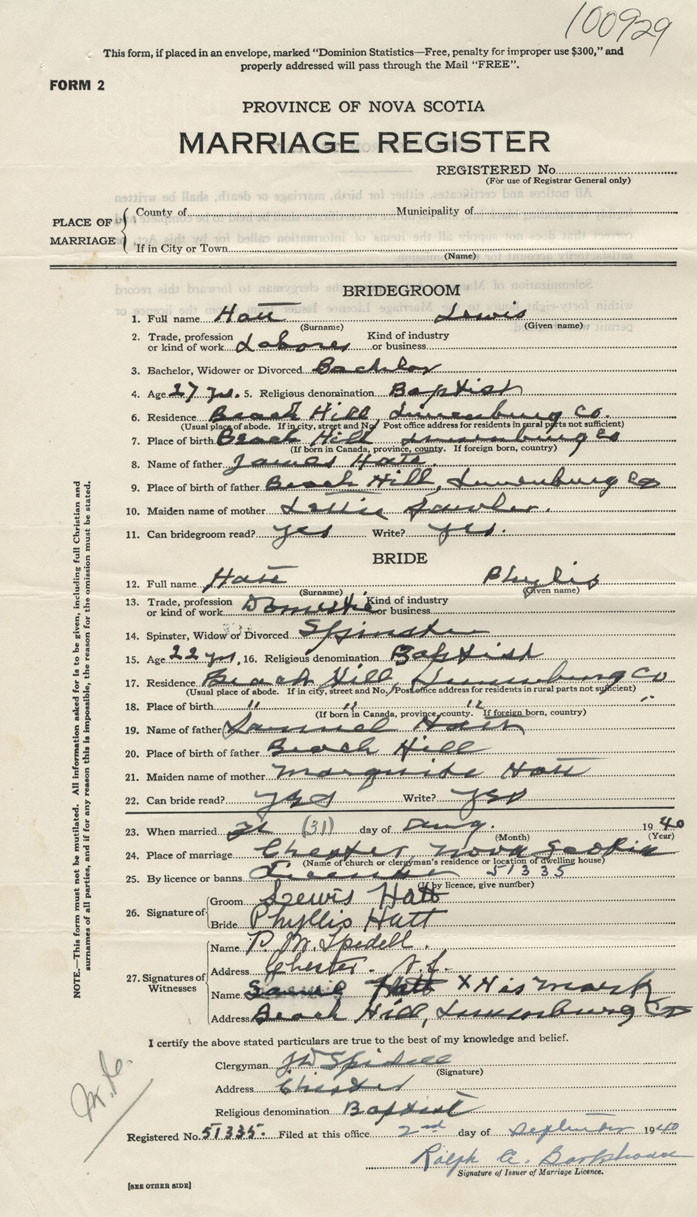 100929
This form, if placed in an envelope, marked "Dominion Statistics—Free, penalty for improper use $300," and
properly addressed will pass through the Mail "FREE".
FORM 2
PROVINCE OF NOVA SCOTIA
MARRIAGE REGISTER
REGISTERED No.
(For use of Registrar General only)
PLACE OF MARRIAGE
County of Municipality of
If in City or Town
(Name)
BRIDEGROOM
1. Full name Hatt Lewis
(Surname) (Given name)
2. Trade, profession or kind of work Laborer Kind of industry or business
3. Bachelor, Widower or Divorced Bachelor
4. Age 27 yrs. 5. Religious denomination Baptist
6. Residence Beach Hill, Lunenburg Co.
(Usual place of abode. If in city, street and No. Post office address for residents in rural parts not sufficient)
7. Place of birth Beach Hill Lunenburg Co
(If born in Canada, province, county. If foreign born, country)
8. Name of father James Hatt
9. Place of birth of father Beach Hill, Lunenburg Co
10. Maiden name of mother Lettie
11. Can bridegroom read? yes Write? yes.
BRIDE
12. Full name Hatt Phylis
(Surname) (Given name)
13. Trade, profession or kind of work Domestic Kind of industry or business
14. Spinster, Widow or Divorced Spinster
15. Age 22 yrs, 16. Religious denomination Baptist
17. Residence Beach Hill, Lunenburg Co
(Usual place of abode. If in city, street and No. Post office address for residents in rural parts not sufficient)
18. Place of birth " " " "
(If born in Canada, province, county. If foreign born, country)
19. Name of father Samuel Hatt
20. Place of birth of father Beach Hill
21. Maiden name of mother Hatt
22. Can bride read? yes Write? yes
23. When married (31) day of Aug. 1940
(Month) (Year)
24. Place of marriage Chester, Nova Scotia
(Name of church or clergyman's residence or location of dwelling house)
25. By licence or banns License 51335
(If by licence, give number)
26. Signature of
Groom Lewis Hatt
Bride Phyllis Hatt
27. Signatures of Witnesses
Name P. M. Spidell.
Address Chester. N.S.
Name Hatt X His mark
Address Beach Hill, Lunenburg Co
I certify the above stated particulars are true to the best of my knowledge and belief.
Clergyman Spidell
(Signature)
Address Chester
Religious denomination Baptist
Registered No. 51335. Filed at this office 2nd day of September 1940
Ralph
Signature of Issuer of Marriage Licence.
[SEE OTHER SIDE]
NOTE.—This form must not be mutilated. All information asked for is to be given, including full Christian and
surnames of all parties, and if for any reason this is impossible, the reason for the omission must be stated.